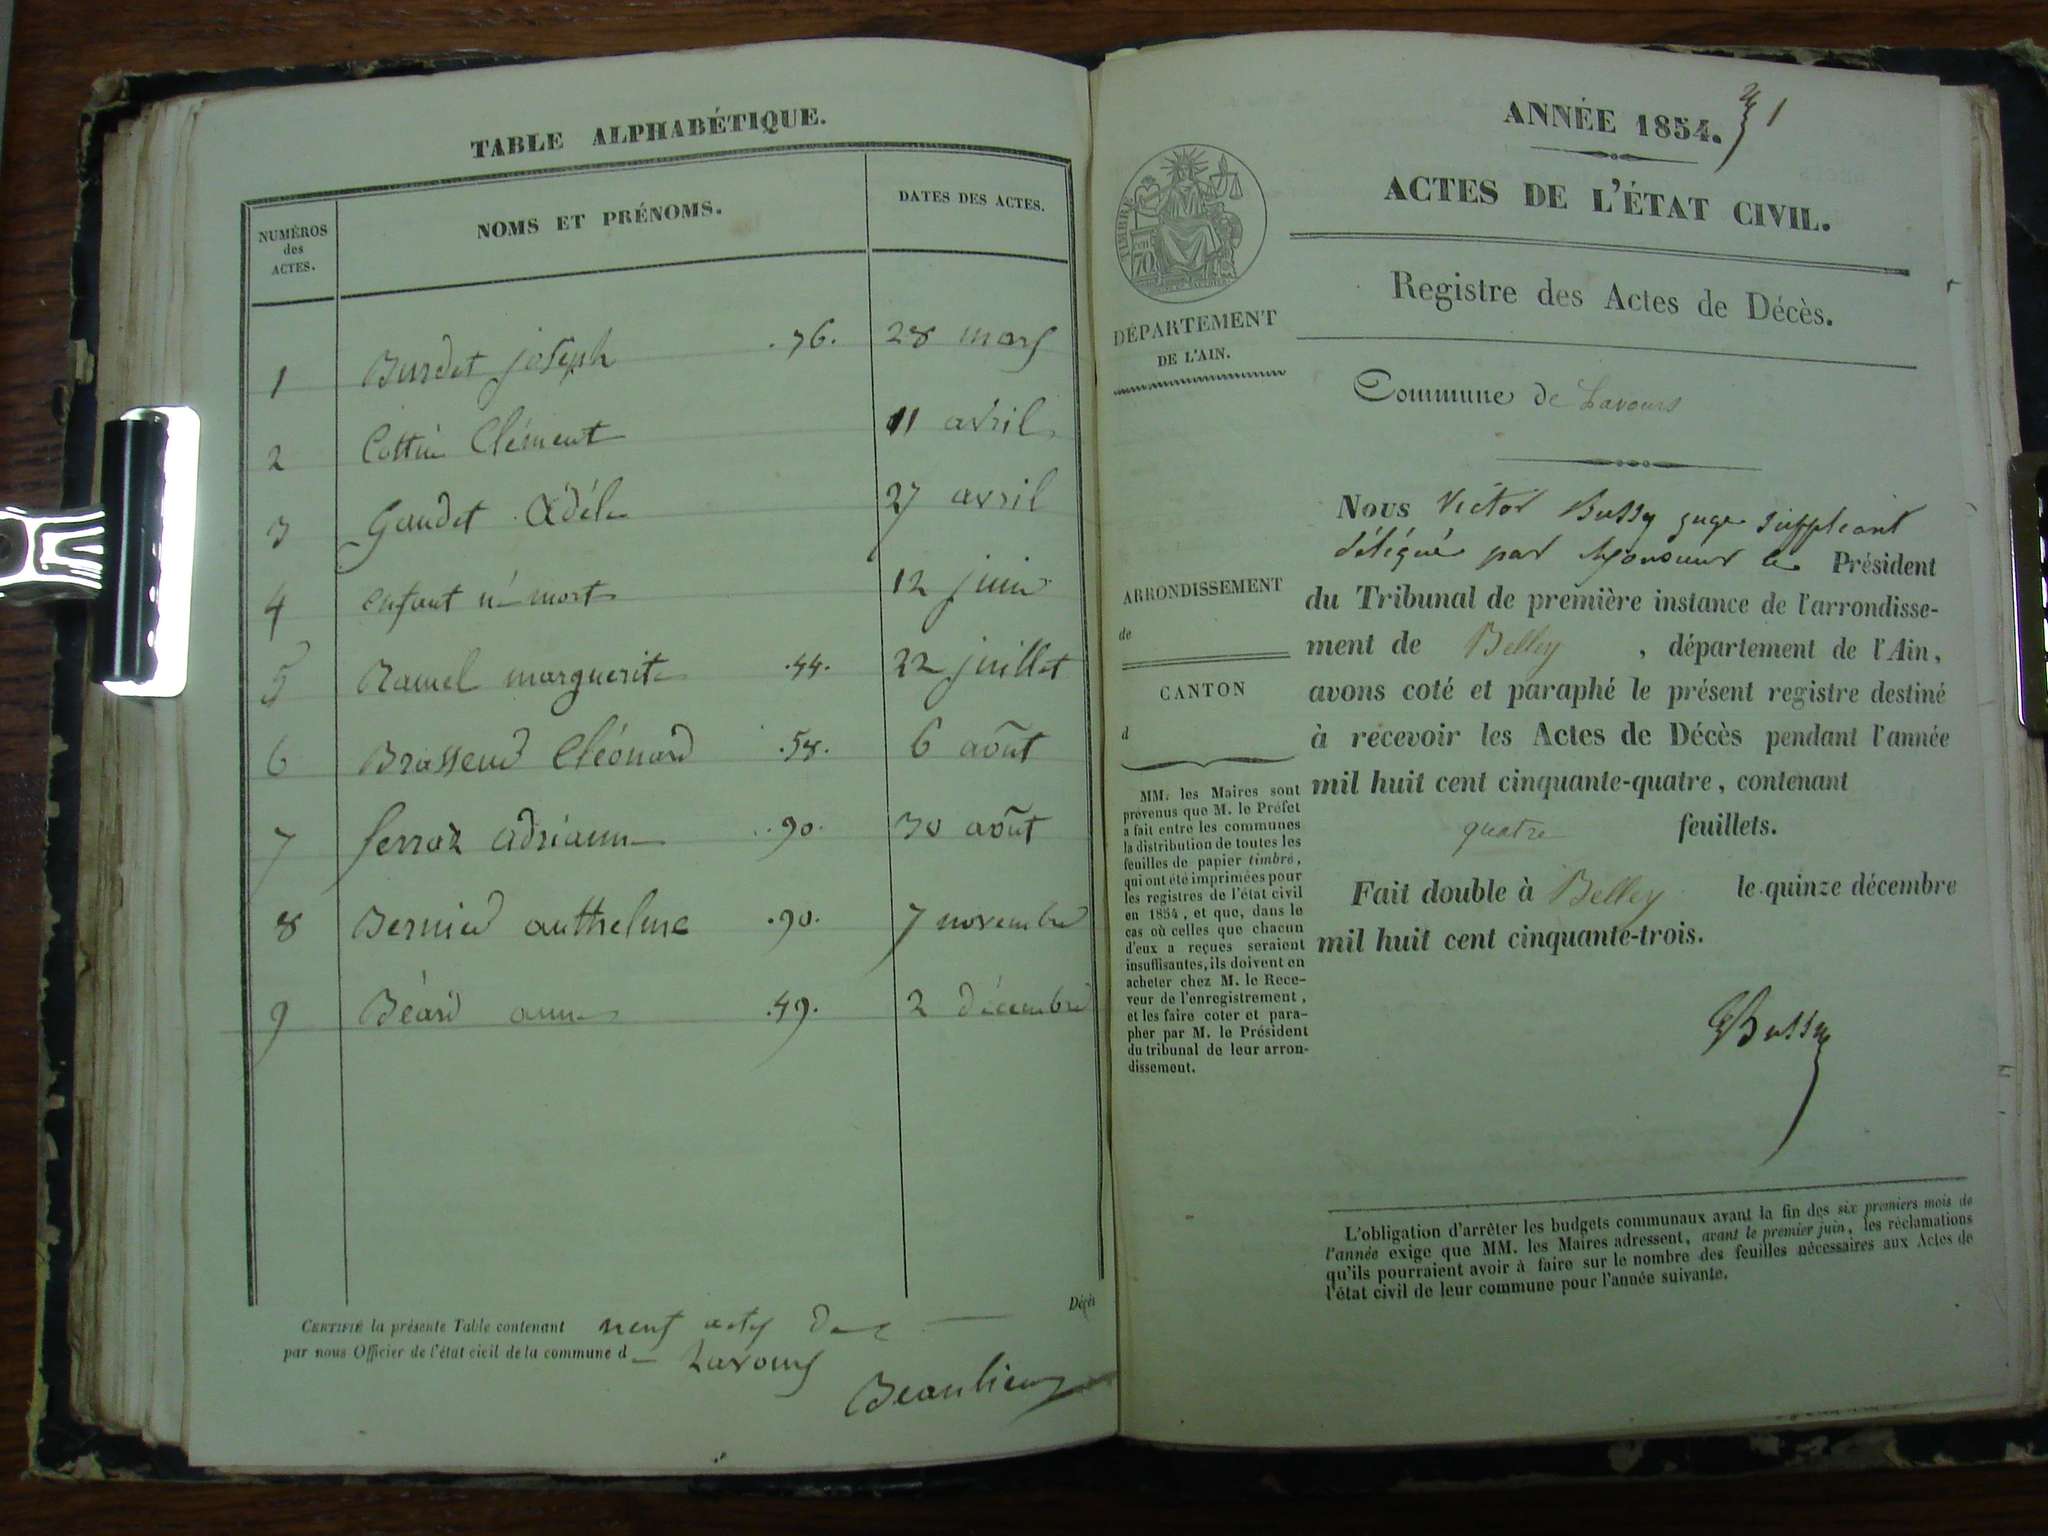 TABLE ALPHABÉTIQUE.
NUMÉROS des ACTES. NOMS ET PRÉNOMS. DATES DES ACTES.
1 Burdet joseph .76. 28 mars
2 Cottin Clément 11 avril
3 Gaudet Adèle 27 avril
4 enfant né mort 12 juin
5 Ramel marguerite .44. 22 juillet
6 Brasseud Cléonard .58. 6 août
7 ferraz adrianne .90. 30 août
8 Bernier anthelme .90. 7 novembre
9 Béard anne .49. 2 décembre
Décès
CERTIFIÉ la présente Table contenant neuf actes de
par nous Officier de l'état civil de la commune d Lavours
Beaulieu
1
ANNÉE 1854.
ACTES DE L'ÉTAT CIVIL.
TIMBRE
cent
70
Registre des Actes de Décès.
DÉPARTEMENT
DE L'AIN.
Commune de Lavours
Nous Victor Bussy juge suppléant
délégué par Monsieur le Président
du Tribunal de première instance de l'arrondisse-
ment de Belley , département de l'Ain,
avons coté et paraphé le présent registre destiné
à recevoir les Actes de Décès pendant l'année
mil huit cent cinquante-quatre, contenant
quatre feuillets.
Fait double à Belley le quinze décembre
mil huit cent cinquante-trois.
Bussy
ARRONDISSEMENT
de
CANTON
d
MM. les Maires sont
prévenus que M. le Préfet
a fait entre les communes
la distribution de toutes les
feuilles de papier timbré,
qui ont été imprimées pour
les registres de l'état civil
en 1854, et que, dans le
cas où celles que chacun
d'eux a reçues seraient
insuffisantes, ils doivent en
acheter chez M. le Rece-
veur de l'enregistrement,
et les faire coter et para-
pher par M. le Président
du tribunal de leur arron-
dissement.
L'obligation d'arrêter les budgets communaux avant la fin des six premiers mois de
l'année exige que MM. les Maires adressent, avant le premier juin, les réclamations
qu'ils pourraient avoir à faire sur le nombre des feuilles nécessaires aux Actes de
l'état civil de leur commune pour l'année suivante.